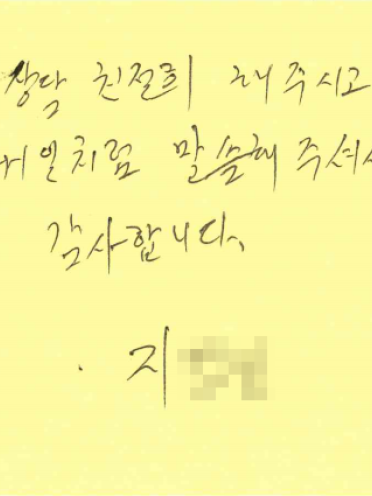 상담 친절히 해주시고
내일처럼 말씀해 주셔서
감사합니다.
지